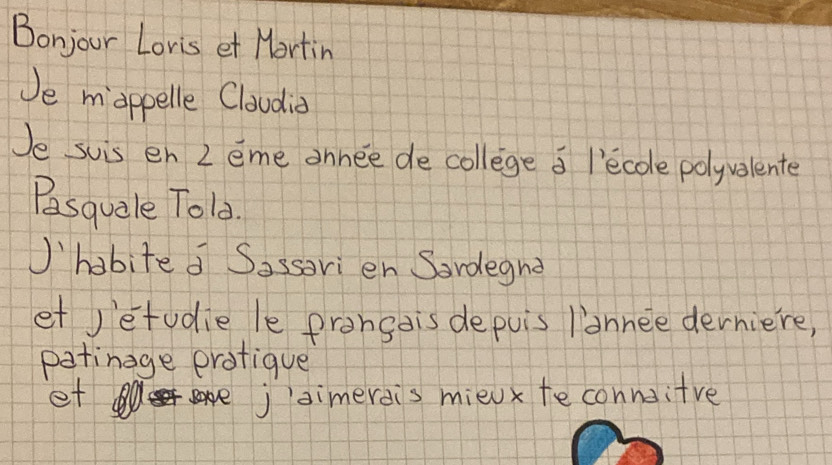 Bonjour Loris et Martin
Je m'appelle Claudia
Je suis en 2 éme année de collége á l'école polyvalente
Pasquale Tola.
J'habite á Sassari en Sardegna
et j'étudie le français depuis l'année derniére,
patinage pratique
et j'aimerais mieux te connaitre